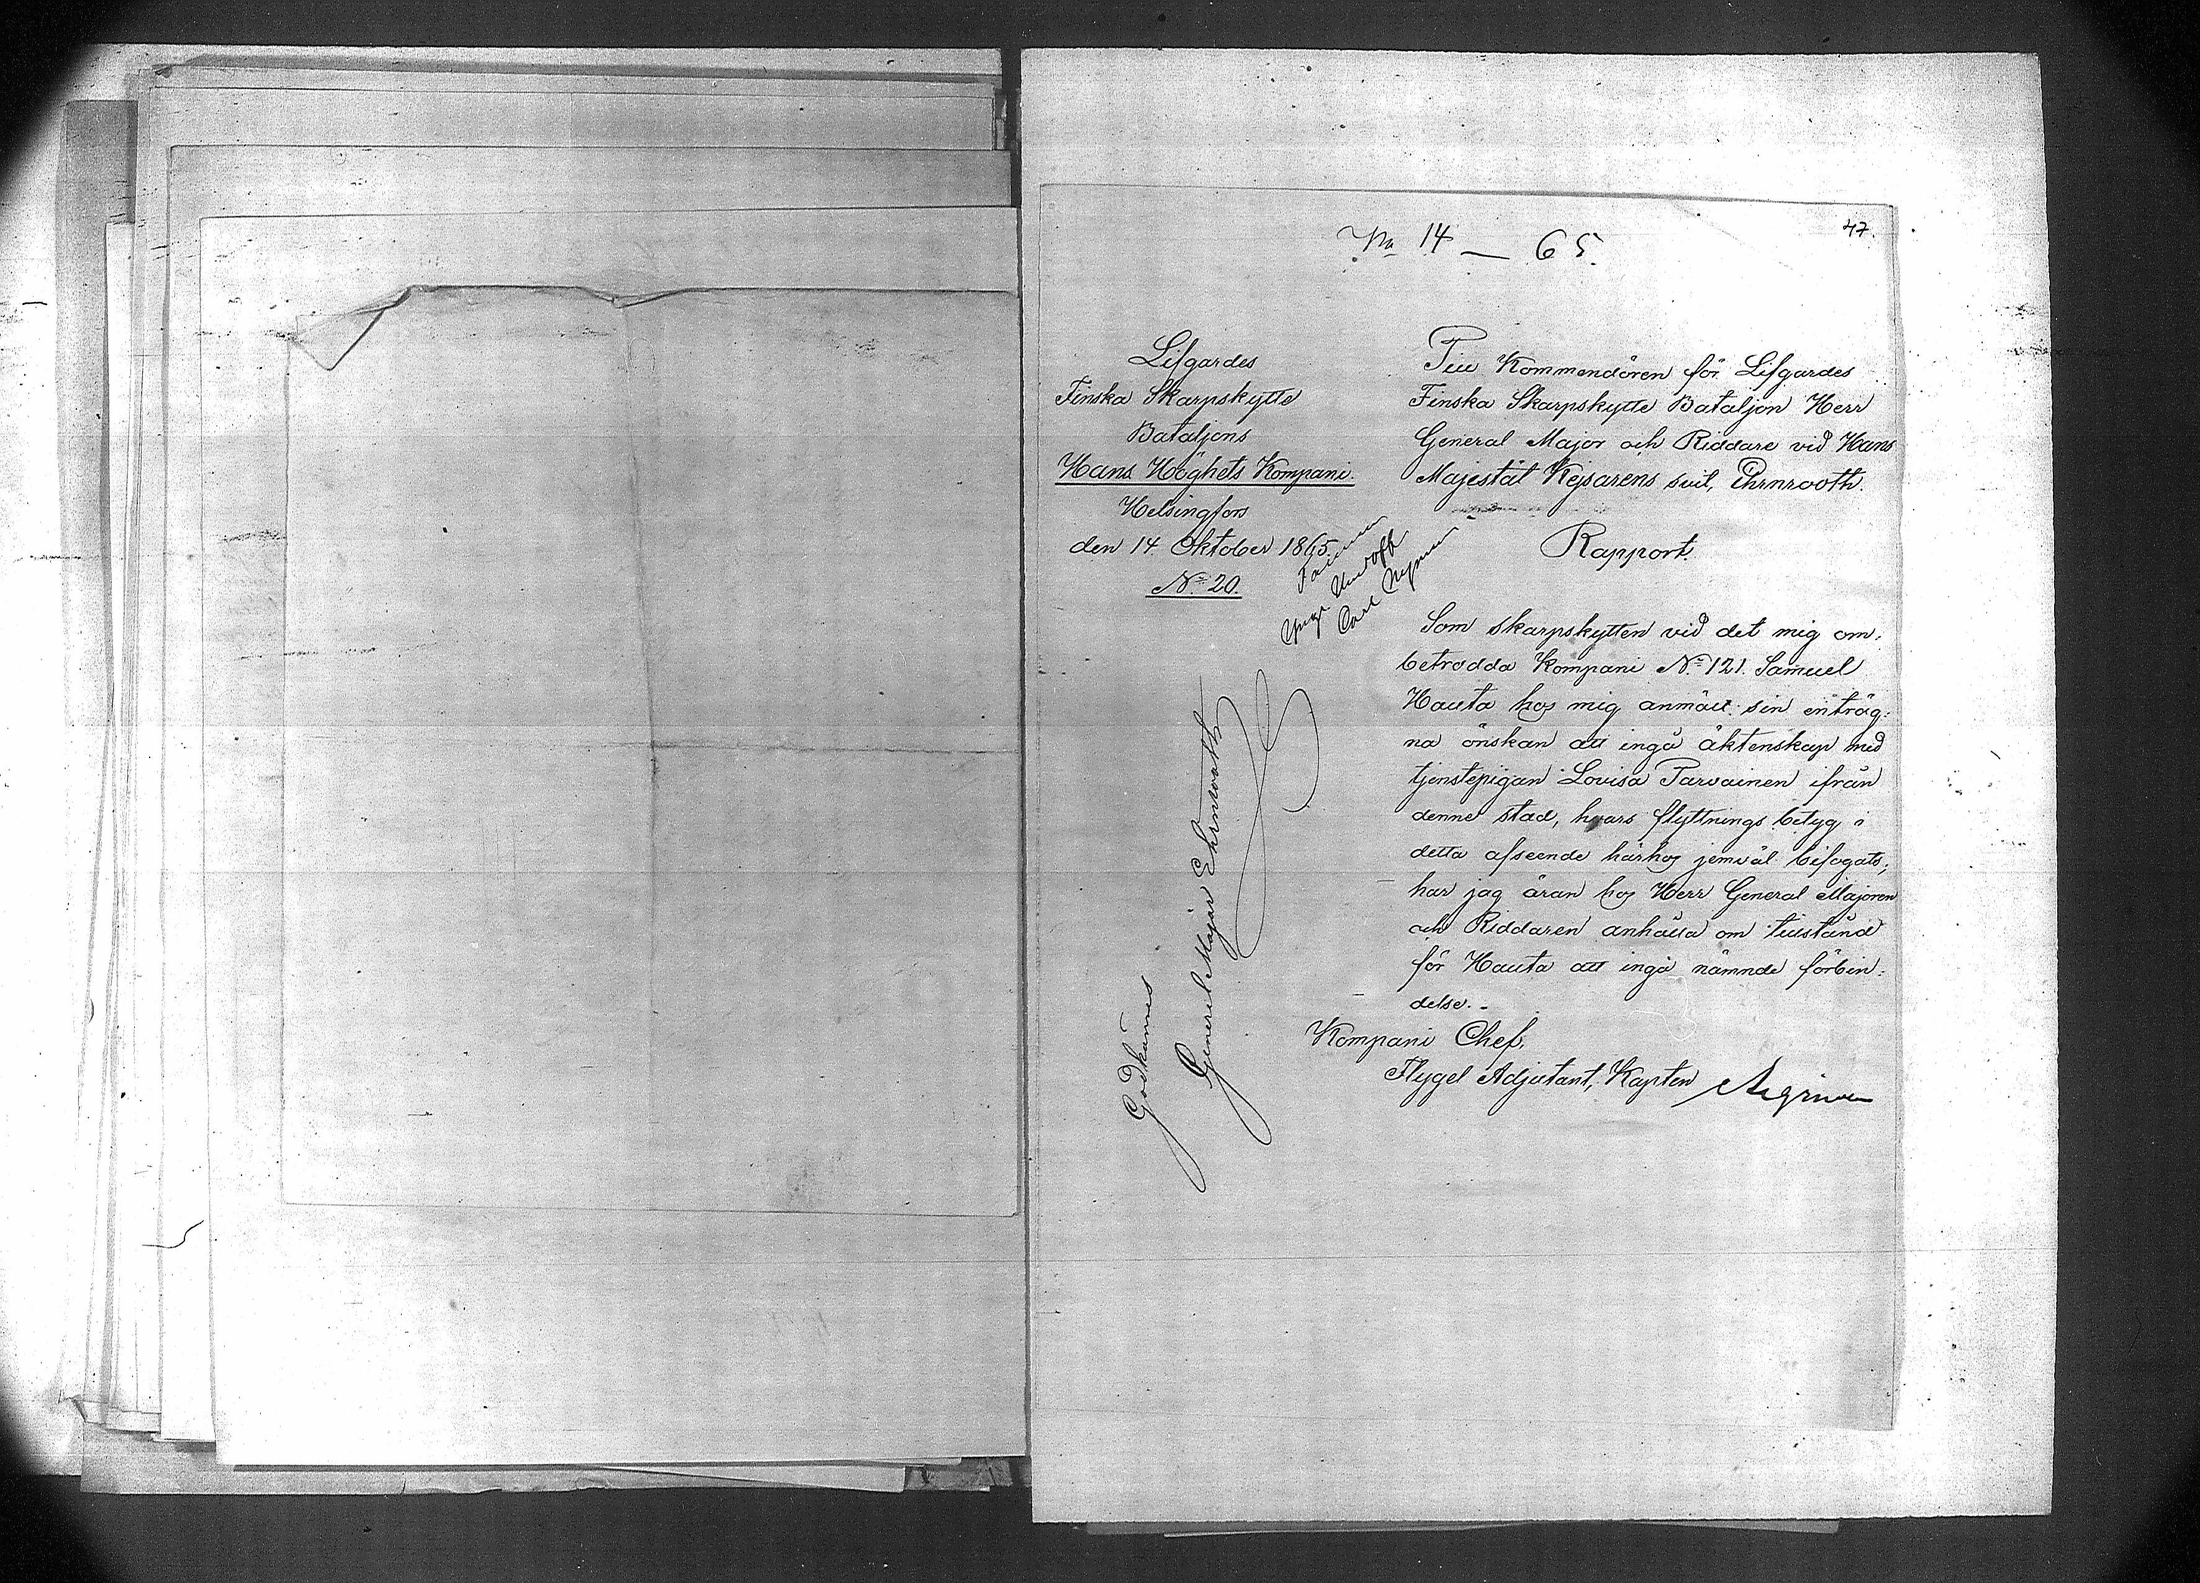 47.
No 14 — 65.
Lifgardes
Finska Skarpskytte
Bataljons
Hans Höghets Kompani.
Helsingfors
den 14 Oktober 1865.
No 20.
Till Kommendören för Lifgardes
Finska Skarpskytte Bataljon Herr
General Major och Riddare vid Hans
Majestät Kejsarens svit, Ehrnrooth.
Rapport.
Carl Nyman
Som skarpskytten vid det mig om:
betrodda Kompani No 121. Samuel
Hauta hos mig anmält sin enträg:
na önskan att ingå äktenskap med
tjenstepigan Lovisa Parvainen ifrån
denne stad, hvars flyttnings betyg i
detta afseende härhos jemväl bifogats;
har jag äran hos Herr General Majoren
och Riddaren anhålla om tillstånd
för Hauta att ingå nämnde förbin:
delse. -
Kompani Chef,
Flygel Adjutant, Kapten
Godkännes
General Major Ehrnrooth